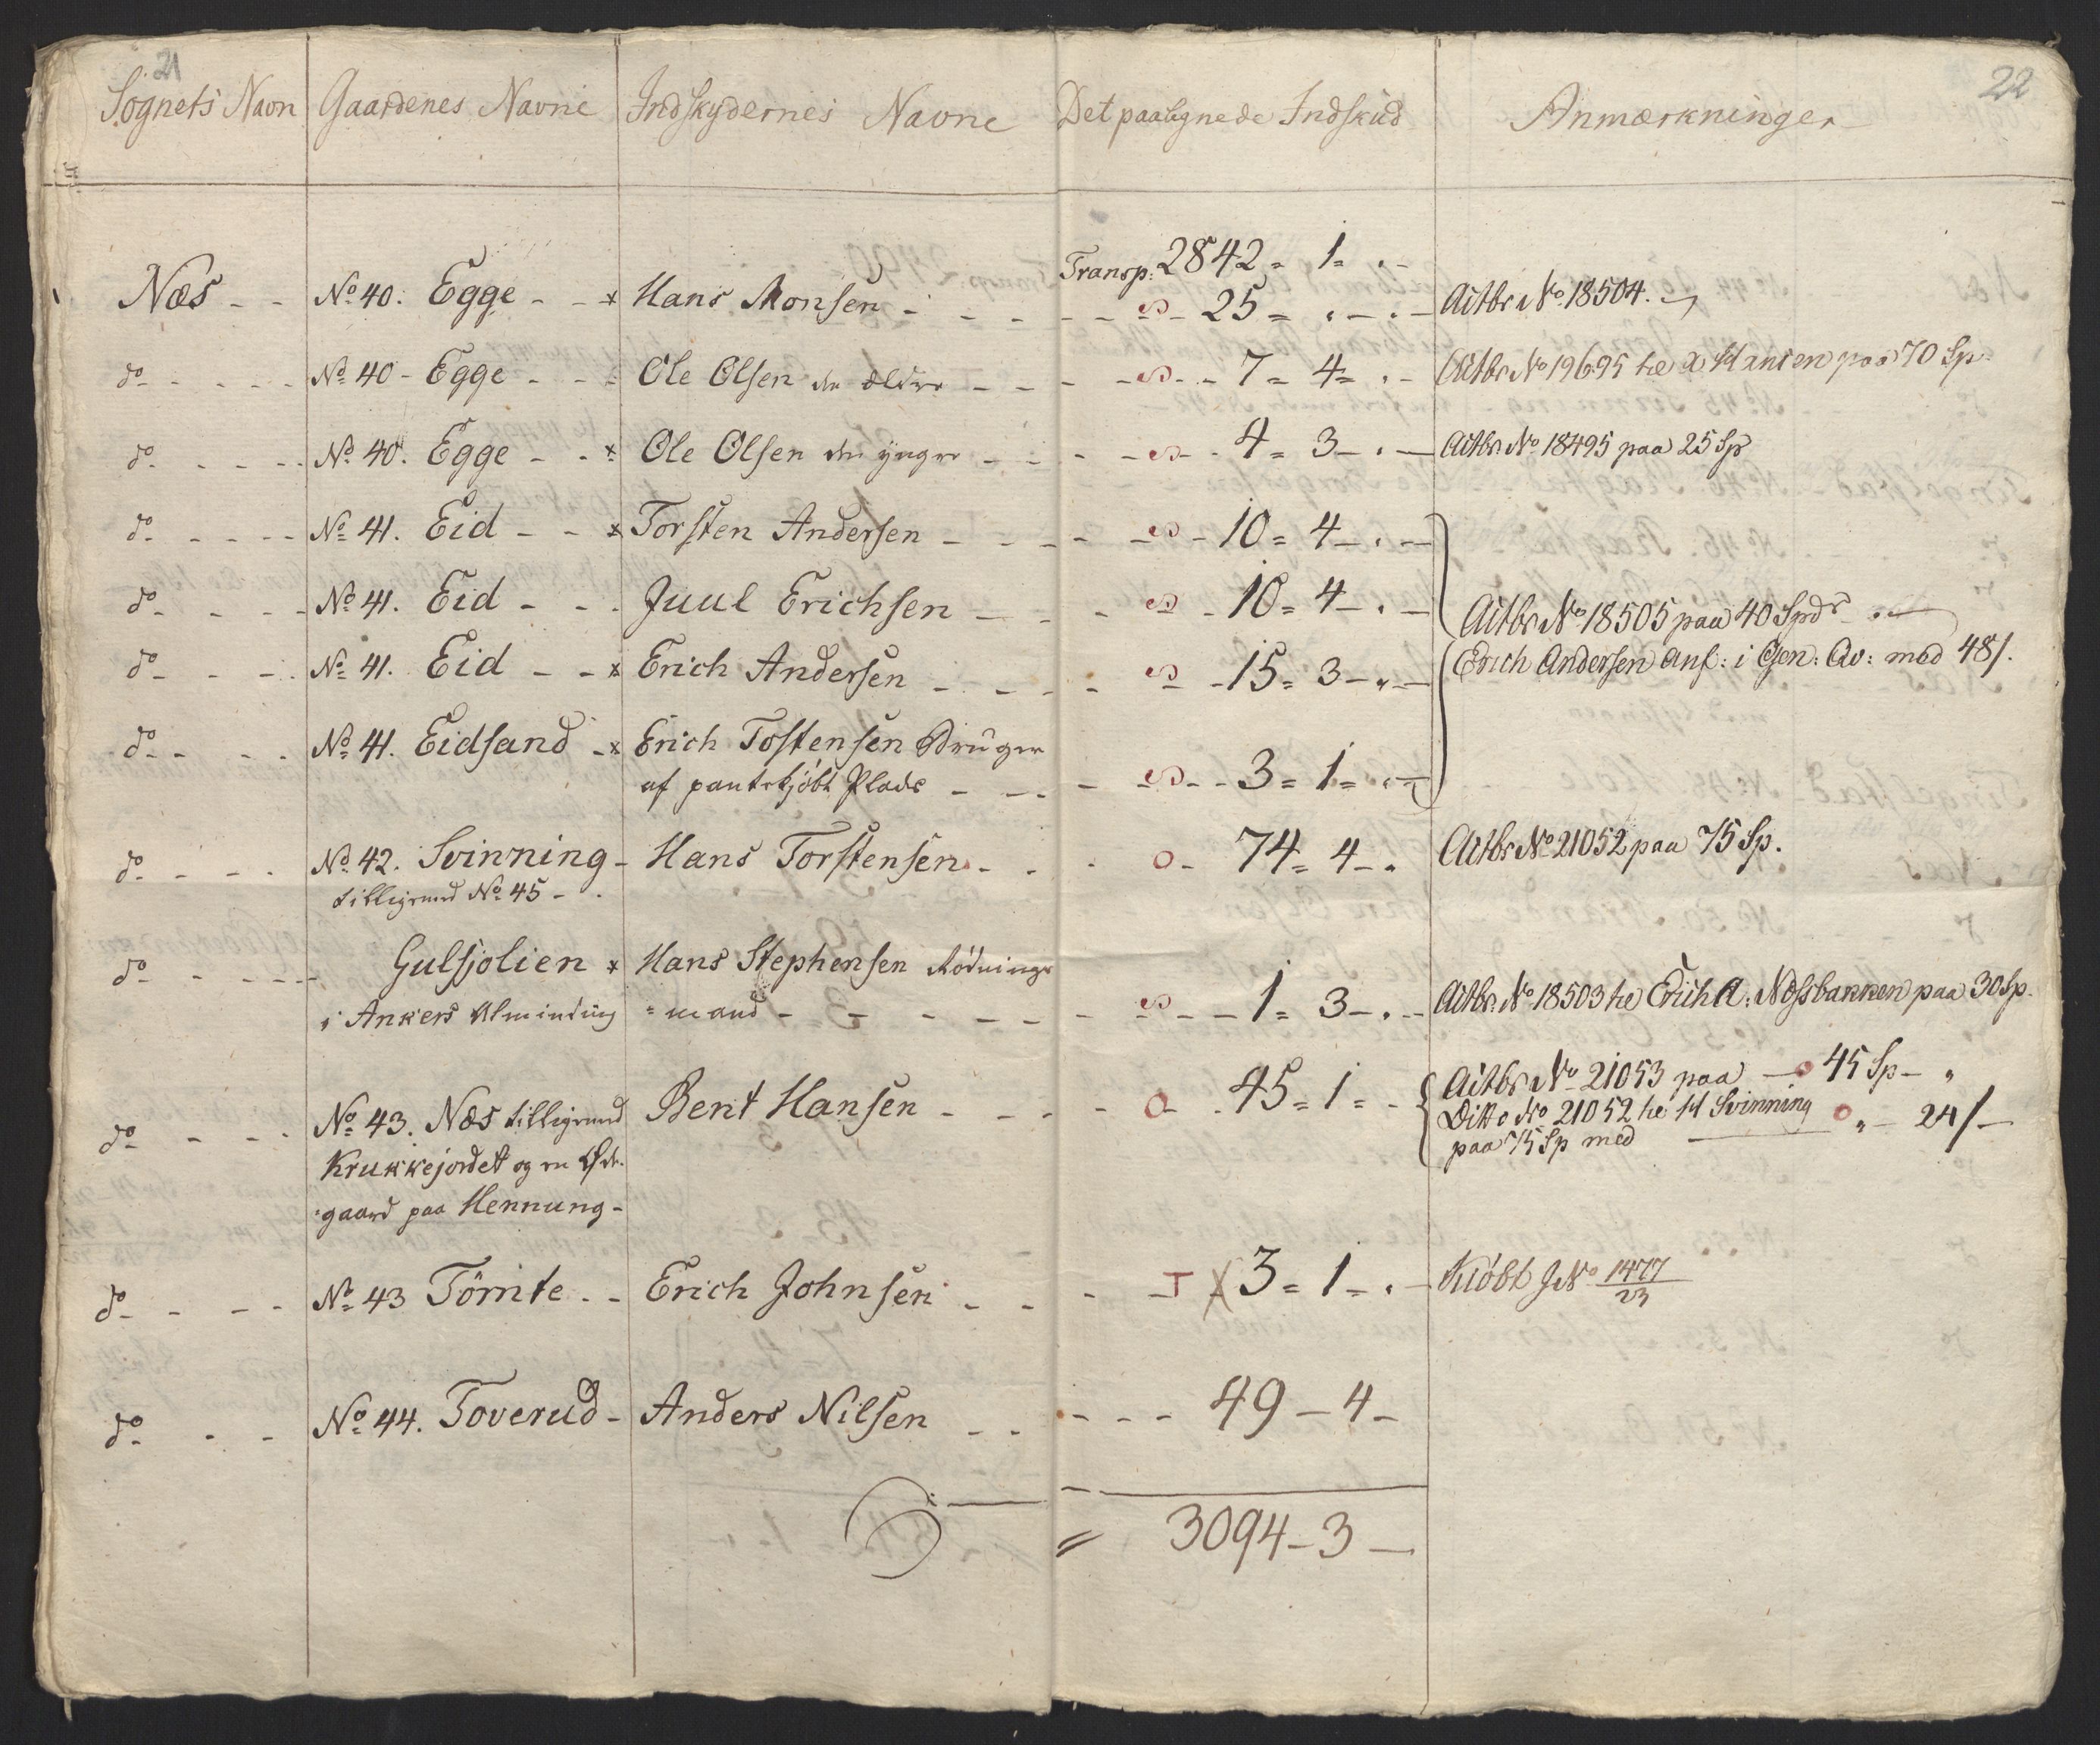 21
22
Sognets Navn Gaardenes Navne Indskydernes Navne Det paalignede Indskud Anmærkninger
Transp: 2842 = 1 = . -
Næs - - No 40. Egge - - * Hans Monsen - - - - 25 = . - . - Actbr No 18504.
do - - - - No 40 - Egge - - - Ole Olsen den ældre - - - - 7 = 4 = . - Actbr No 19695 paa 70 Sp.
do - - - - No 40. Egge - - * Ole Olsen den yngre - - - - 4 = 3 - . - Actbr No 18495 paa 25 Sp
do - - - - No 41. Eid - - * Torsten Andersen - - - - 10 = 4 - . -
do - - - - No 41. Eid - - . Juul Erichsen - - - - 10 = 4 - . - Actbr No 18505 paa 40 Spdr
do - - - - No 41. Eid - - * Erich Andersen - - - - 15 = 3 - . - Erich Andersen anf: i Gen: Qv: med 48/.
do - - - - No 41. Eidsand - * Erich Tostensen Bruger
af pantekjöbt Plads - - - - 3 = 1 = . -
do - - - - No 42. Svinning - Hans Torstensen - - - o - 74 = 4 - . Actbr No 21052 paa 75 Sp.
tilligemed No 45 - .
do - - - - Gulsjolien * Hans Stephensen Rödnings
i Ankers Alminding = mand - - - - 1 = 3 - . - Actbr No 18503 Erich A: Næssbakken paa 30 Sp.
do - - - No 43. Næs tilligemed Bent Hansen - - - - o - 45 = 1 = - Actbr No 21053 paa - o 45 Sp - "
Ditto No 21052 H Svinning o " - 24/ -
paa 75 Sp med
Krukkejordet og en Øde-
gaard paa Hennung -
do - - - No 43 Tömte - - Erich Johnsen - - - T X 3 = 1 = . - Kiöbt J No 1477/23
do - - - No 44. Toverud - Anders Nilsen - - - - 49 - 4 -
= 3094 - 3 -